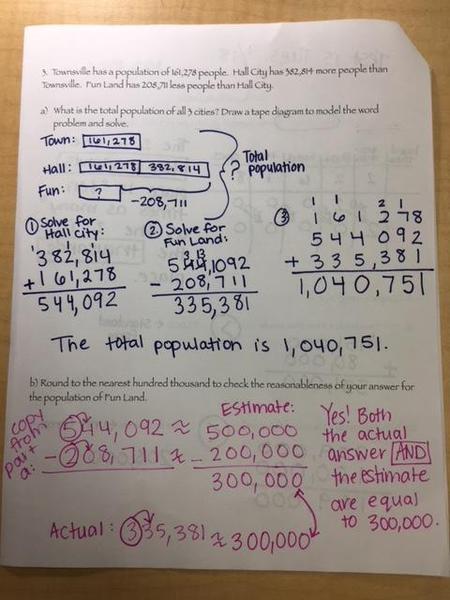 3. Townsville has a population of 161,278 people. Hall City has 382,814 more people than
Townsville. Fun Land has 208,711 less people than Hall City.
a) What is the total population of all 3 cities? Draw a tape diagram to model the word
problem and solve.
Town: 161,278
Hall: 161,278 382,814
Fun: ?
-208,711
? Total
population
① Solve for
Hall City:
1 1
382,814
+161,278
544,092
② Solve for
Fun Land:
3 13
544,092
- 208,711
335,381
③
1 1 2 1
161 278
544 092
+ 335,381
1,040,751
The total population is 1,040,751.
b) Round to the nearest hundred thousand to check the reasonableness of your answer for
the population of Fun Land.
copy
from
part
a:
Estimate:
544,092 ≈ 500,000
- 208,711 ≈ - 200,000
300,000
Actual: 335,381 ≈ 300,000
Yes! Both
the actual
answer AND
the estimate
are equal
to 300,000.